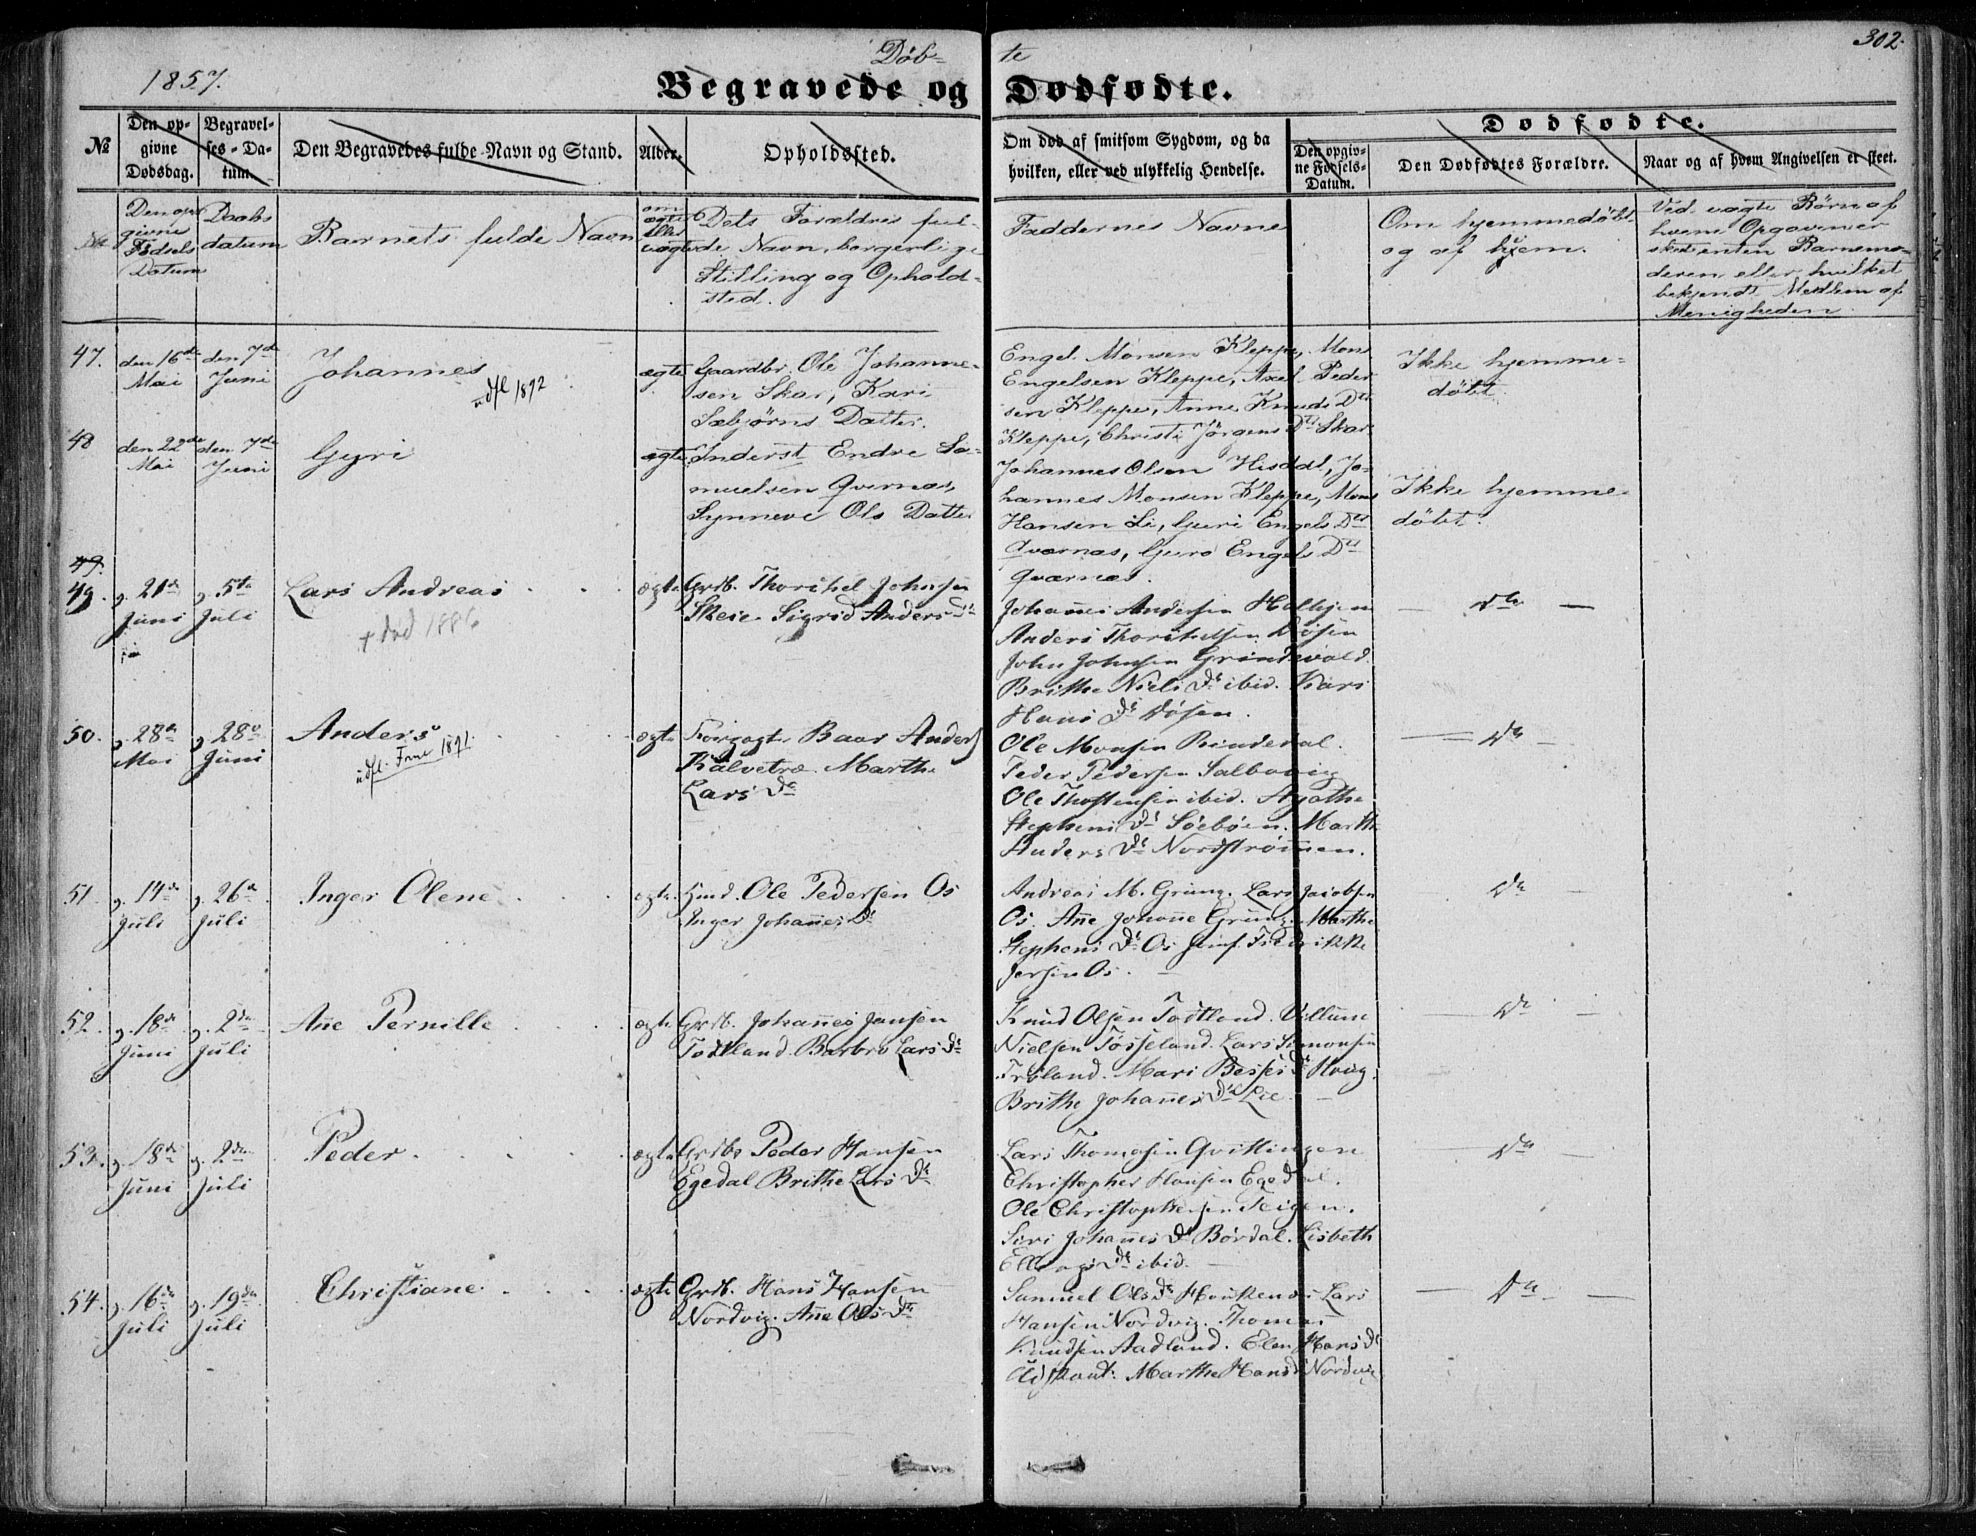 1857.
Døb-
te
302.
Begravede og Dødfødte.
№
Den op-
givne
Dødsdag.
Begravel-
ses-Da-
tum.
Den Begravedes fulde Navn og Stand.
Alder.
Opholdssted.
Om død af smitsom Sygdom, og da
hvilken, eller ved ulykkelig Hendelse.
Dødfødte.
Den opgiv-
ne Fødsels-
Datum.
Den Dødfødtes Forældre.
Naar og af hvem Angivelsen er skeet.
№
Den op-
givne
Fødsels
Datum
Daabs
datum
Barnets fulde Navn
om
ægte
eller
uægte
Dets Forældres ful-
de Navn, borgerlige
Stilling og Ophold-
sted.
Faddernes Navne
Om hjemmedøbt
og af hvem.
Ved uægte Børn af
hvem Opgaven er
skeet enten Barnemo-
deren eller hvilket
bekjendt Medlem af
Menigheden.
47.
den 16de
Mai
den 7de
Juni
Johannes
udfl 1892
ægte
Gaardbr. Ole Johanne-
sen Skar, Kari
Sæbjørns Datter.
Engel Monsen Kleppe, Mons
Engelsen Kleppe, Axel Peder
sen Kleppe, Anne Knuds Dtr
Kleppe, Christi Jørgens Dtr Skar
Ikke hjemme-
døbt.
48
den 22de
Mai
den 7de
Juni
Gyri
ægte
Inderst Endre Sa-
muelsen Qvernæs,
Synneve Ols Datter
Johannes Olsen Hisdal, Jo-
hannes Monsen Kleppe, Mons
Hansen Li, Guri Engels Dtr
Qvernæs, Guro Engels Dtr
Qværnæs.
Ikke hjemme-
døbt.
49.
49.
d. 21de
Juni
d. 5te
Juli
Lars Andreas
+ død 1886
ægte
Grdb. Thorchel Johnsen
Skeie Sigrid Anders Dr
Johannes Andersen Halhjem
Anders Thorchelsen Døsen
John Johnsen Grindevold
Brithe Niels Dr ibid. Kari
Hans Dr Døsen.
Do
50.
d. 28de
Mai
d. 28de
Juni
Anders
udfl. Fme 1891.
ægte
Baar Anders
Kalvetræ Marthe
Lars Dr
Ole Monsen Rindedal.
Peder Pedersen Salbovig
Ole Thostensen ibid. Agathe
Stephens Dr Søebøen. Marthe
Anders Dr Nordstrømen.
Do
51.
d. 14de
Juli
d. 26de
Juli
Inger Olene
ægte
Ole Pedersen Os
Inger Johannes Dr
Andreas M. Grung. Lars Jacobsen
Os. Añe Johañe Grung. Marthe
Stephens Dr Os Fredrikke
Jersin Os.
Do
52.
d. 18de
Juni
d. 2den
Juli
Añe Pernille
ægte
Grdb. Johañes Jansen
Todtland Barbro Lars Dr
Knud Olsen Todtland. Villum
Nielsen Tøsseland. Lars Simonsen
Frøland. Mari Besses Dr Houg.
Brithe Johañes Dr Lie
Do
53.
d. 18de
Juni
d. 2den
Juli
Peder
ægte
Grdbr Peder Hansen
Egedal Brithe Lars Dr
Lars Thomasen Qvittingen
Christopher Hansen Egedal.
Ole Christophersen Teigen.
Siri Johañes Dr Børdal. Lisbeth
Ellings Dr ibid.
Do
54.
d. 16de
Juli
d. 19de
Juli
Christiane
ægte
Grdb. Hans Hansen
Nordvig. Añe Ols Dr
Samuel Lars
Hansen Nordvig. Thomas
Knudsen Aadland. Elen Hans Dr
Marthe Hans Dr Nordvig
Do